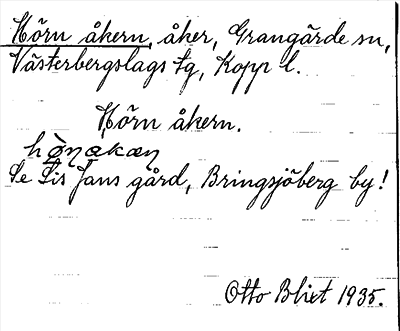 Hörn åkern, åker, Grangärde sn,
Västerbergslags tg, Kopp l.
Hörn åkern.
Se Lis Jans gård, Bringsjöberg by!
Otto Blixt 1935.